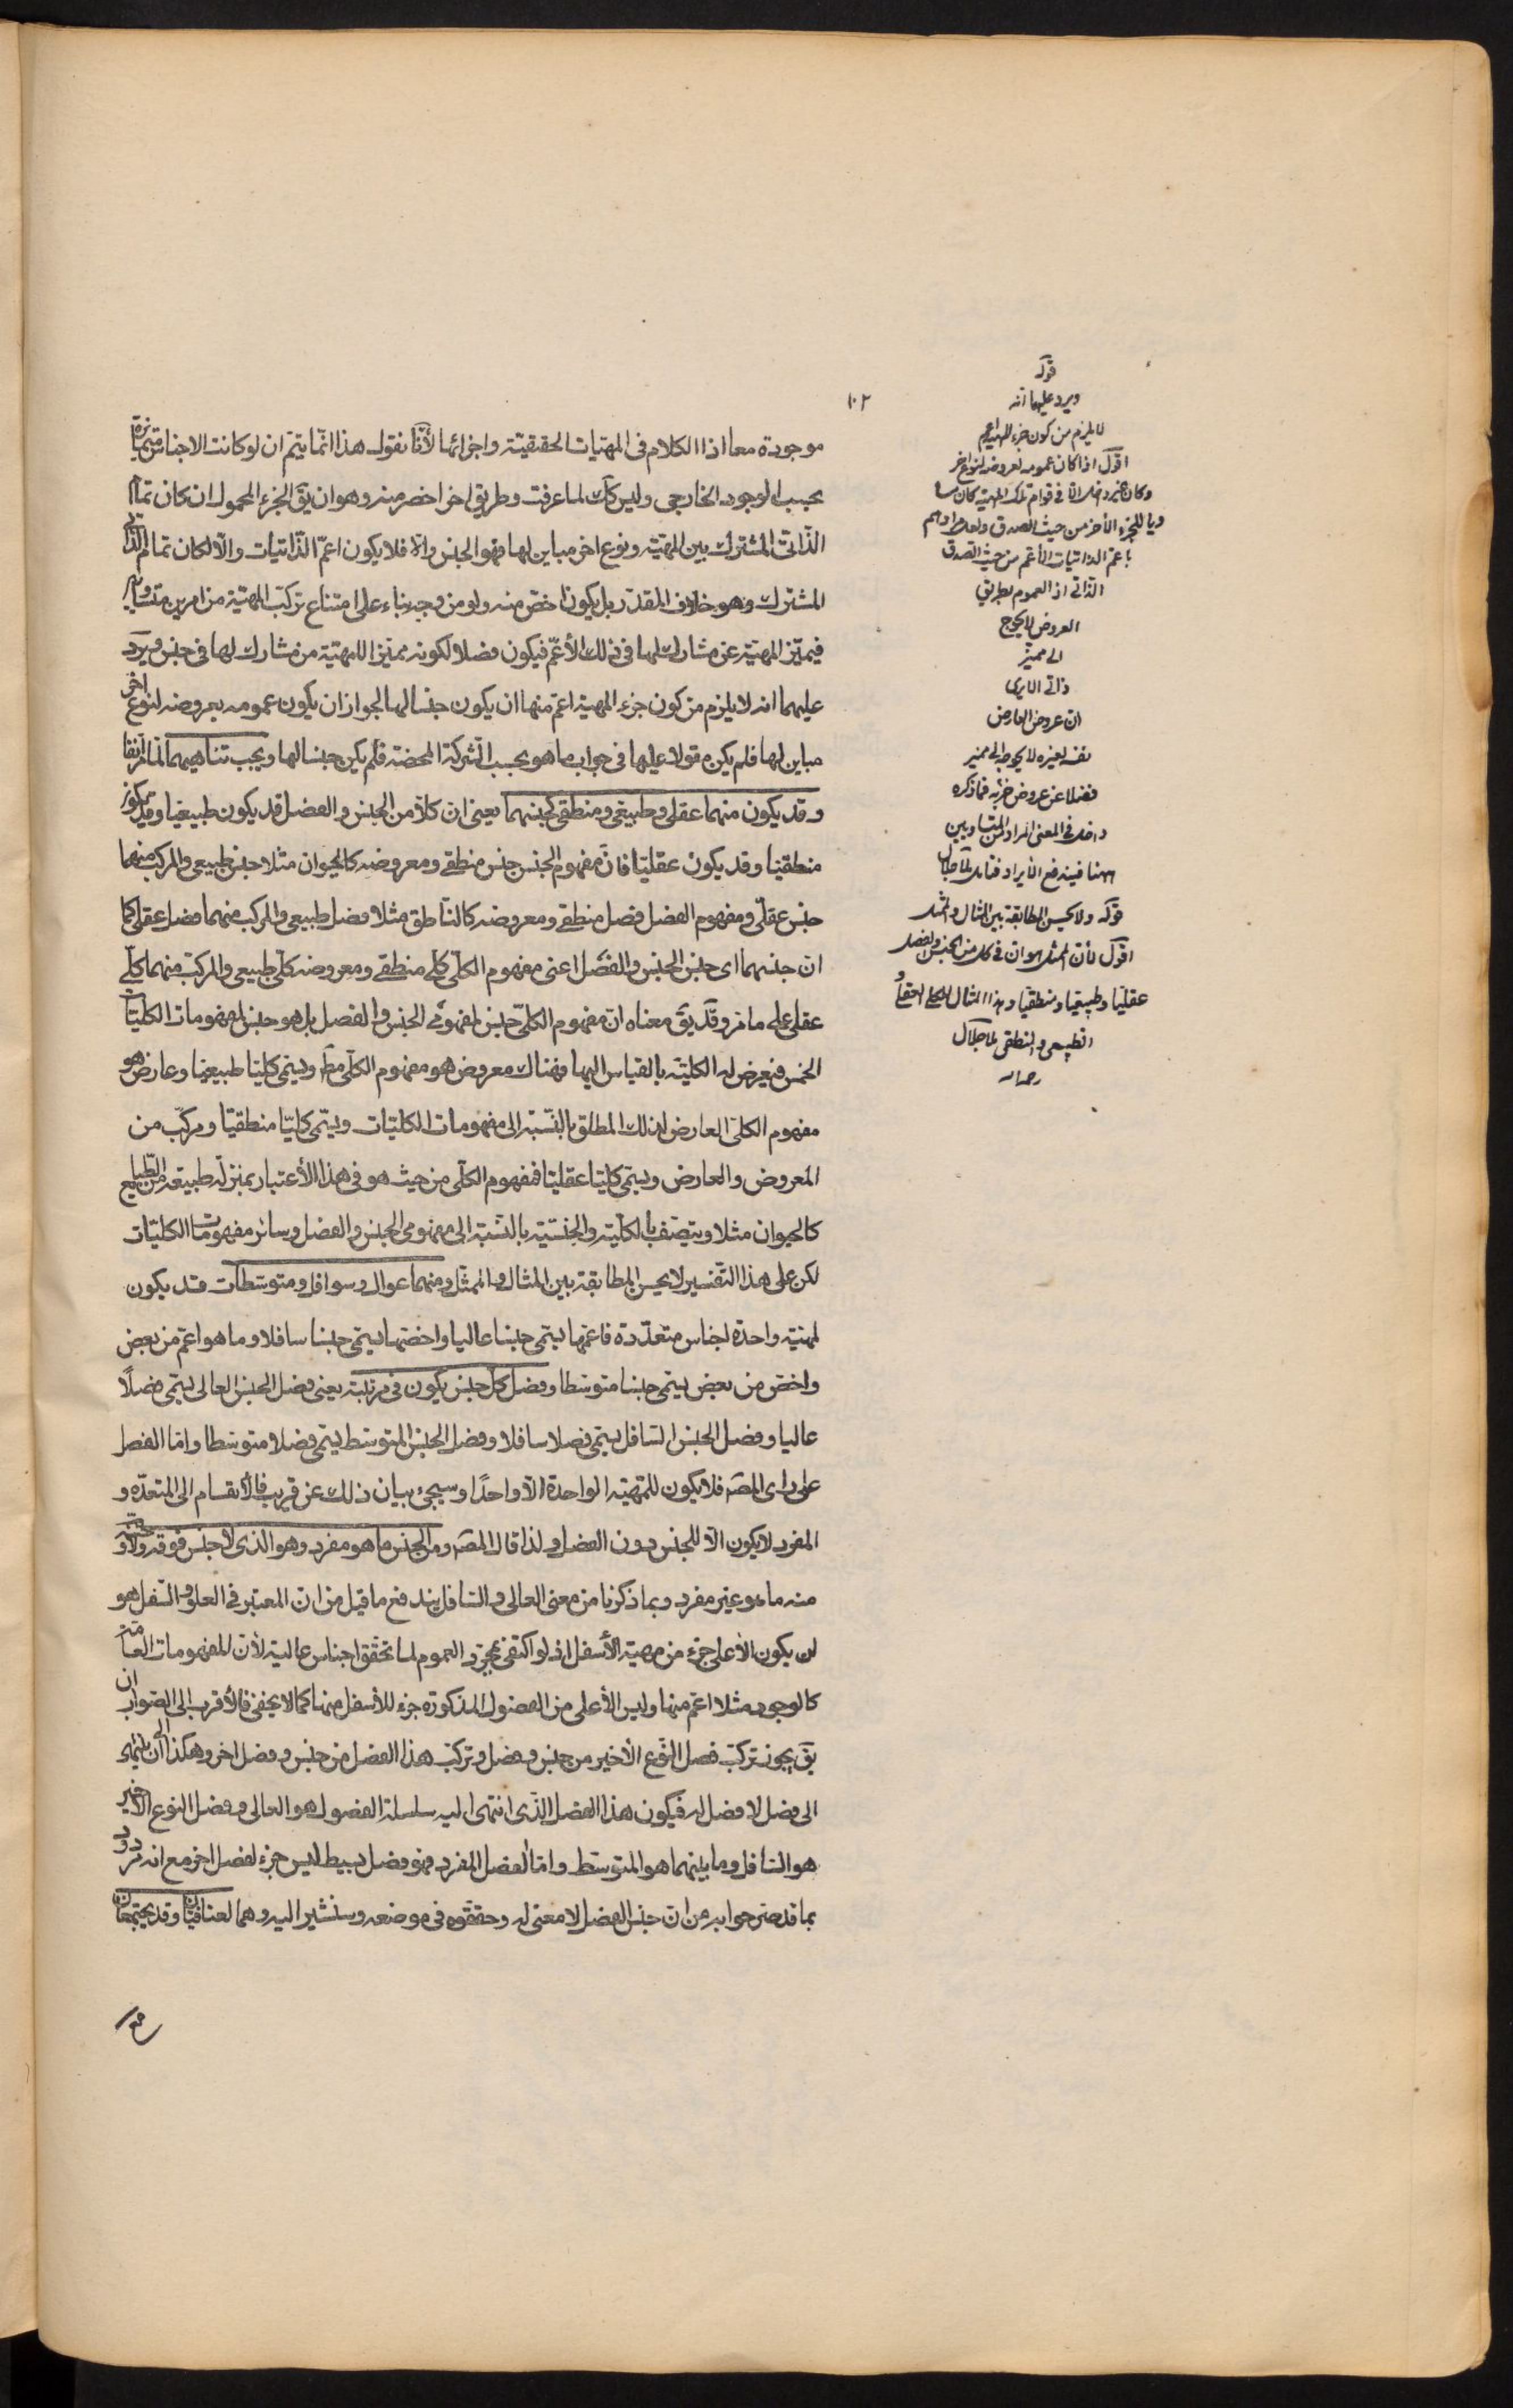 ١٠٢
موجودة معا اذا الكلام فى المهيّات الحقيقيّة واجزائها لأنّا نقول هذا انّما يتمّ ان لو كانت الاجناس متميزة
بحسب الوجود الخارجى وليس كك لما عرفت وطريق اخر اخصر منه وهو ان يق الجزء المحمول ان كان تمام
الذّاتى المشترك بين المهيّة ونوع اخر مباين لها فهو الجنس والّا فلا يكون اعمّ الذّاتيات والّا لكان تمام الذّاتى
المشترك وهو خلاف المقدّر بل يكون اخصّ منه ولو من وجه بناء على امتناع تركّب المهيّة من امرين متساويين
فيميّز المهيّة عن مشارك لها فى ذلك الأعمّ فيكون فصلا لكونه مميّزا للمهيّة من مشارك لها فى جنس ويرد
عليهما انه لا يلزم من كون جزء المهية اعمّ منها ان يكون جنسا لها لجواز ان يكون عمومه بعروضه لنوع اخر
مباين لها فلم يكن مقولا عليها فى جواب ما هو بحسب الشركة المحضة فلم يكن جنسا لها ويجب تناهيهما لما مر انفا
وقد يكون منهما عقلى وطبيعى ومنطقى كجنسهما يعنى انّ كلّا من الجنس والفصل قد يكون طبيعيا وقد يكون
منطقيا وقد يكون عقليّا فانّ مفهوم الجنس جنس منطقى ومعروضه كالحيوان مثلا جنس طبيعى والمركب منهما
جنس عقلى ومفهوم الفصل فصل منطقى ومعروضه كالنّاطق مثلا فصل طبيعى والمركب منهما فصل عقلى كما
ان جنسهما اى جنس الجنس والفصل اعنى مفهوم الكلّى كلّى منطقى ومعروضه كلّى طبيعى والمركب منهما كلّى
عقلى على ما مر وقد يق معناه ان مفهوم الكلّى جنس لمفهومى الجنس والفصل بل هو جنس لمفهومات الكليّات
الخمس فيعرض له الكلية بالقياس اليها فهناك معروض هو مفهوم الكلّى مط ويسمّى كليّا طبيعيا وعارض هو
مفهوم الكلّى العارض لذلك المطلق بالنّسبة الى مفهومات الكليّات ويسمّى كليّا منطقيّا ومركّب من
المعروض والعارض ويسمّى كليّا عقليّا فمفهوم الكلّى من حيث هو فى هذا الأعتبار بمنزلة طبيعة من الطبايع
كالحيوان مثلا ويتّصف بالكليّة والجنسيّة بالنّسبة الى مفهومى الجنس والفصل وسائر مفهومات الكليّات
لكن على هذا التّفسير لا يحسن المطابقة بين المثال والممثّل ومنهما عوال وسوافل ومتوسّطات قد يكون
لمهية واحدة اجناس متعدّدة فاعمّها يسمّى جنسا عاليا واخصّها يسمّى جنسا سافلا وما هو اعمّ من بعض
واخصّ من بعض يسمّى جنسا متوسطا وفصل كلّ جنس يكون فى مرتبته يعنى فصل الجنس العالى يسمّى فصلًا
عاليا وفصل الجنس السّافل يسمّى فصلا سافلا وفصل الجنس المتوسط يسمّى فصلا متوسّطا وامّا الفصل
على راى المصّ فلا يكون للمهيّة الواحدة الّا واحدًا وسيجىء بيان ذلك عن قريب فالأنقسام الى المتعدّده و
المفرد لا يكون الّا للجنس دون الفصل ولذا قال المصّ ومن الجنس ما هو مفرد وهو الذى لا جنس فوقه ولا تحته و
منه ما هو غير مفرد وبما ذكرنا من معنى العالى والسّافل يندفع ما قيل من ان المعتبر فى العلو والسّفل هو
ان يكون الأعلى جزء من مهية الأسفل اذ لو اكتفى بمجرّد العموم لما تحقّق اجناس عالية لأنّ للمفهومات العامّة
كالوجود مثلا اعمّ منها وليس الأعلى من الفصول المذكورة جزء للأسفل منها كما لا يخفى فالأقرب الى الصّواب ان
يق يجوز تركّب فصل النّوع الأخير من جنس وفصل وتركّب هذا الفصل من جنس وفصل اخر وهكذا الى ان ينتهى
الى فصل لا فصل له فيكون هذا الفصل الّذى انتهى اليه سلسلة الفصول هو العالى وفصل النوع الأخير
هو السّافل وما بينهما هو المتوسّط وامّا الفصل المفرد فهو فصل بسيط ليس جزء لفصل اخر مع انه مردود
بما قد صرحوا به من ان جنس الفصل لا معنى له وحققوه فى موضعه وسنشير اليه وهما اضافيّان وقد يجتمعان
قوله
ويرد عليهما انه
لا يلزم من كون جزء المهية اعم
اقول اذا كان عمومه بعروضه لنوع اخر
وكان غير داخل فى قوام تلك المهية كان
للجزء الأخر من حيث الصدق
باعم الذاتيات الأعم من حيث الصدق
الذّاتى اذ العموم بطريق
العروض لا يحوج
الى مميّز
ذاتى الا يرى
ان عروض العارض
نفسه لغيره لا يحوجه الى مميز
فضلا عن عروض جزئه فما ذكره
داخل فى المعنى المراد من المتساويين
ههنا فيندفع الأيراد فتامل
قوله ولا يحسن المطابقة بين المثال والممثل
اقول لأن الممثل هو ان فى كل من الجنس والفصل
عقليّا وطبيعيا ومنطقيّا وهذا المثال
الطبيعى والمنطقى